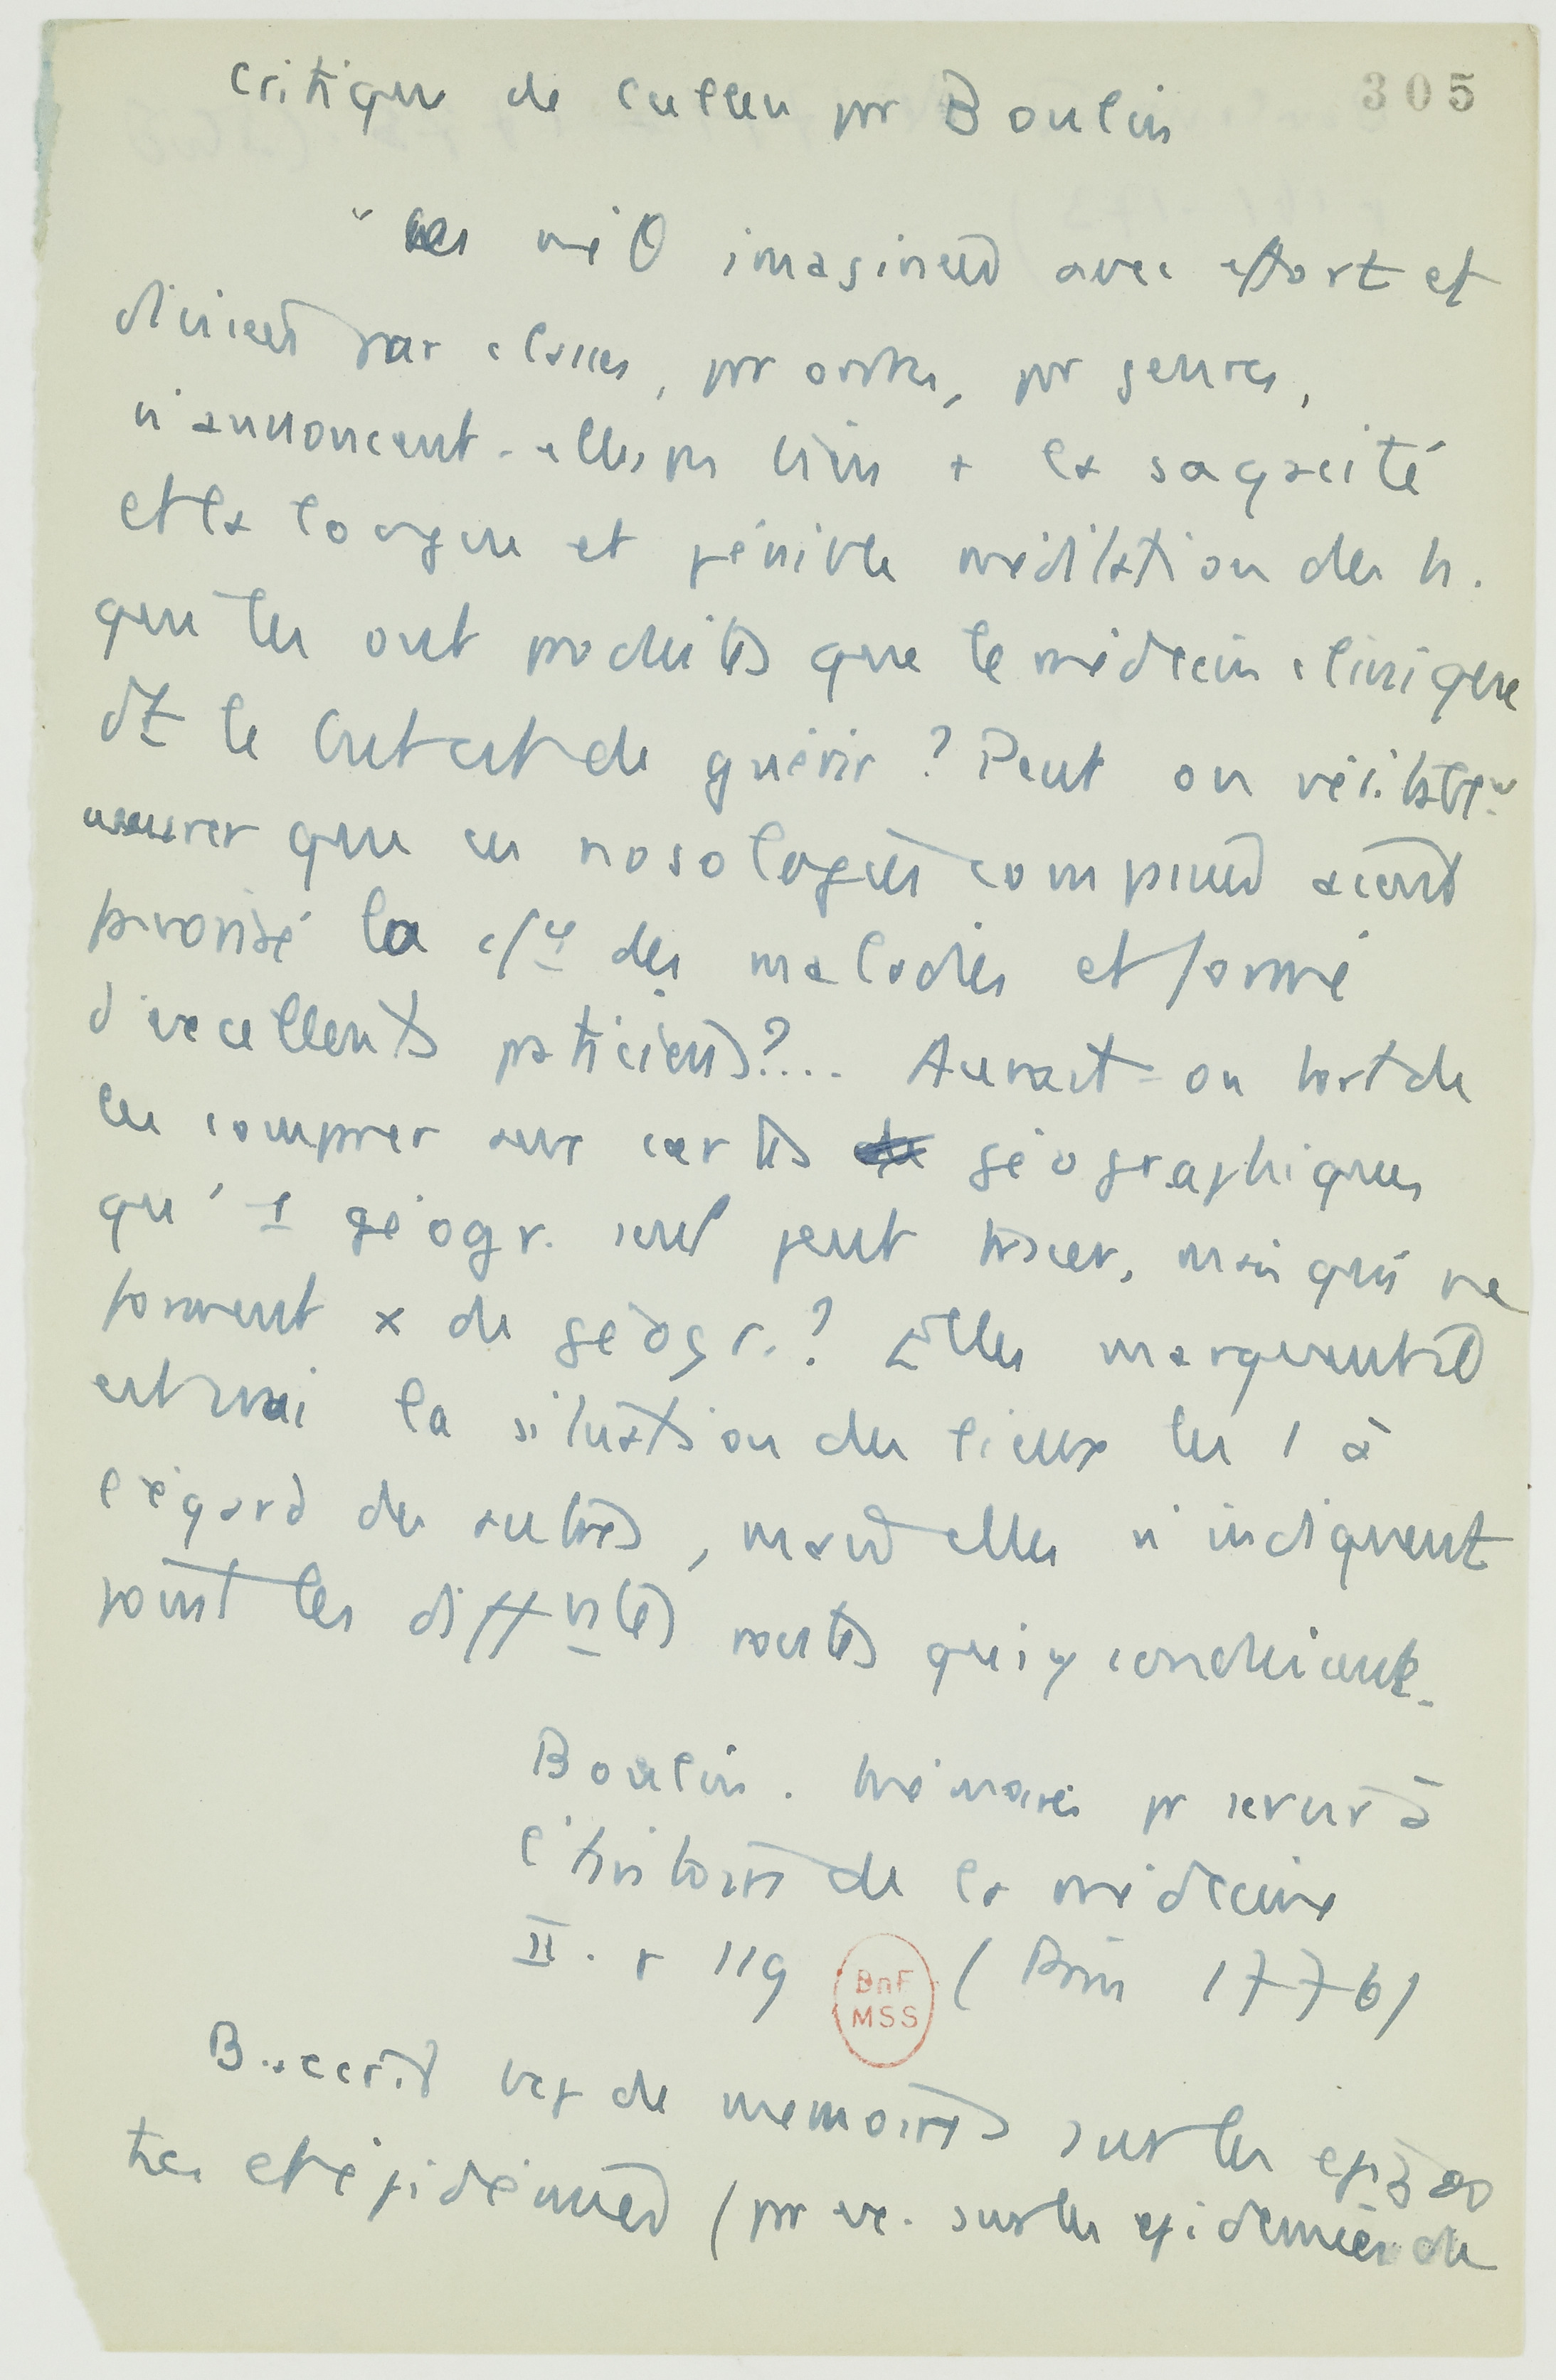 305
Critique de Cullen pr Boulin
" Ces mé θ imaginées avec effort et
divisées par classes, pr ordres, pr genres,
n'annoncent-elles ps bien + la sagacité
et la longue et pénible méditation des h.
qui les ont produites que le médecin clinique
dt le but est de guérir ? Peut on véritablem
assurer que ces nosologies comprises aient
favorisé la c/ce des maladies et formé
d'excellents paticiens ?... Aurait-on tort de
les comprer aux cartes géographiques
qu' 1 géogr. seul peut tracer, mais qui ne
forment x de géogr. ? Elles marquent il
est vrai la situation des lieux les 1 à
l'égard des autres, mais elles n'indiquent
point les difftes routes qui y conduisent.
Boulin. Mémoires pr servir à
l'histoire de la médecine
II. p 119 ( Paris 1776)
BnF
MSS
B. a écrit bcp de memoires sur les epizoo
ties et épidémies (pr ex. sur les epidemies de